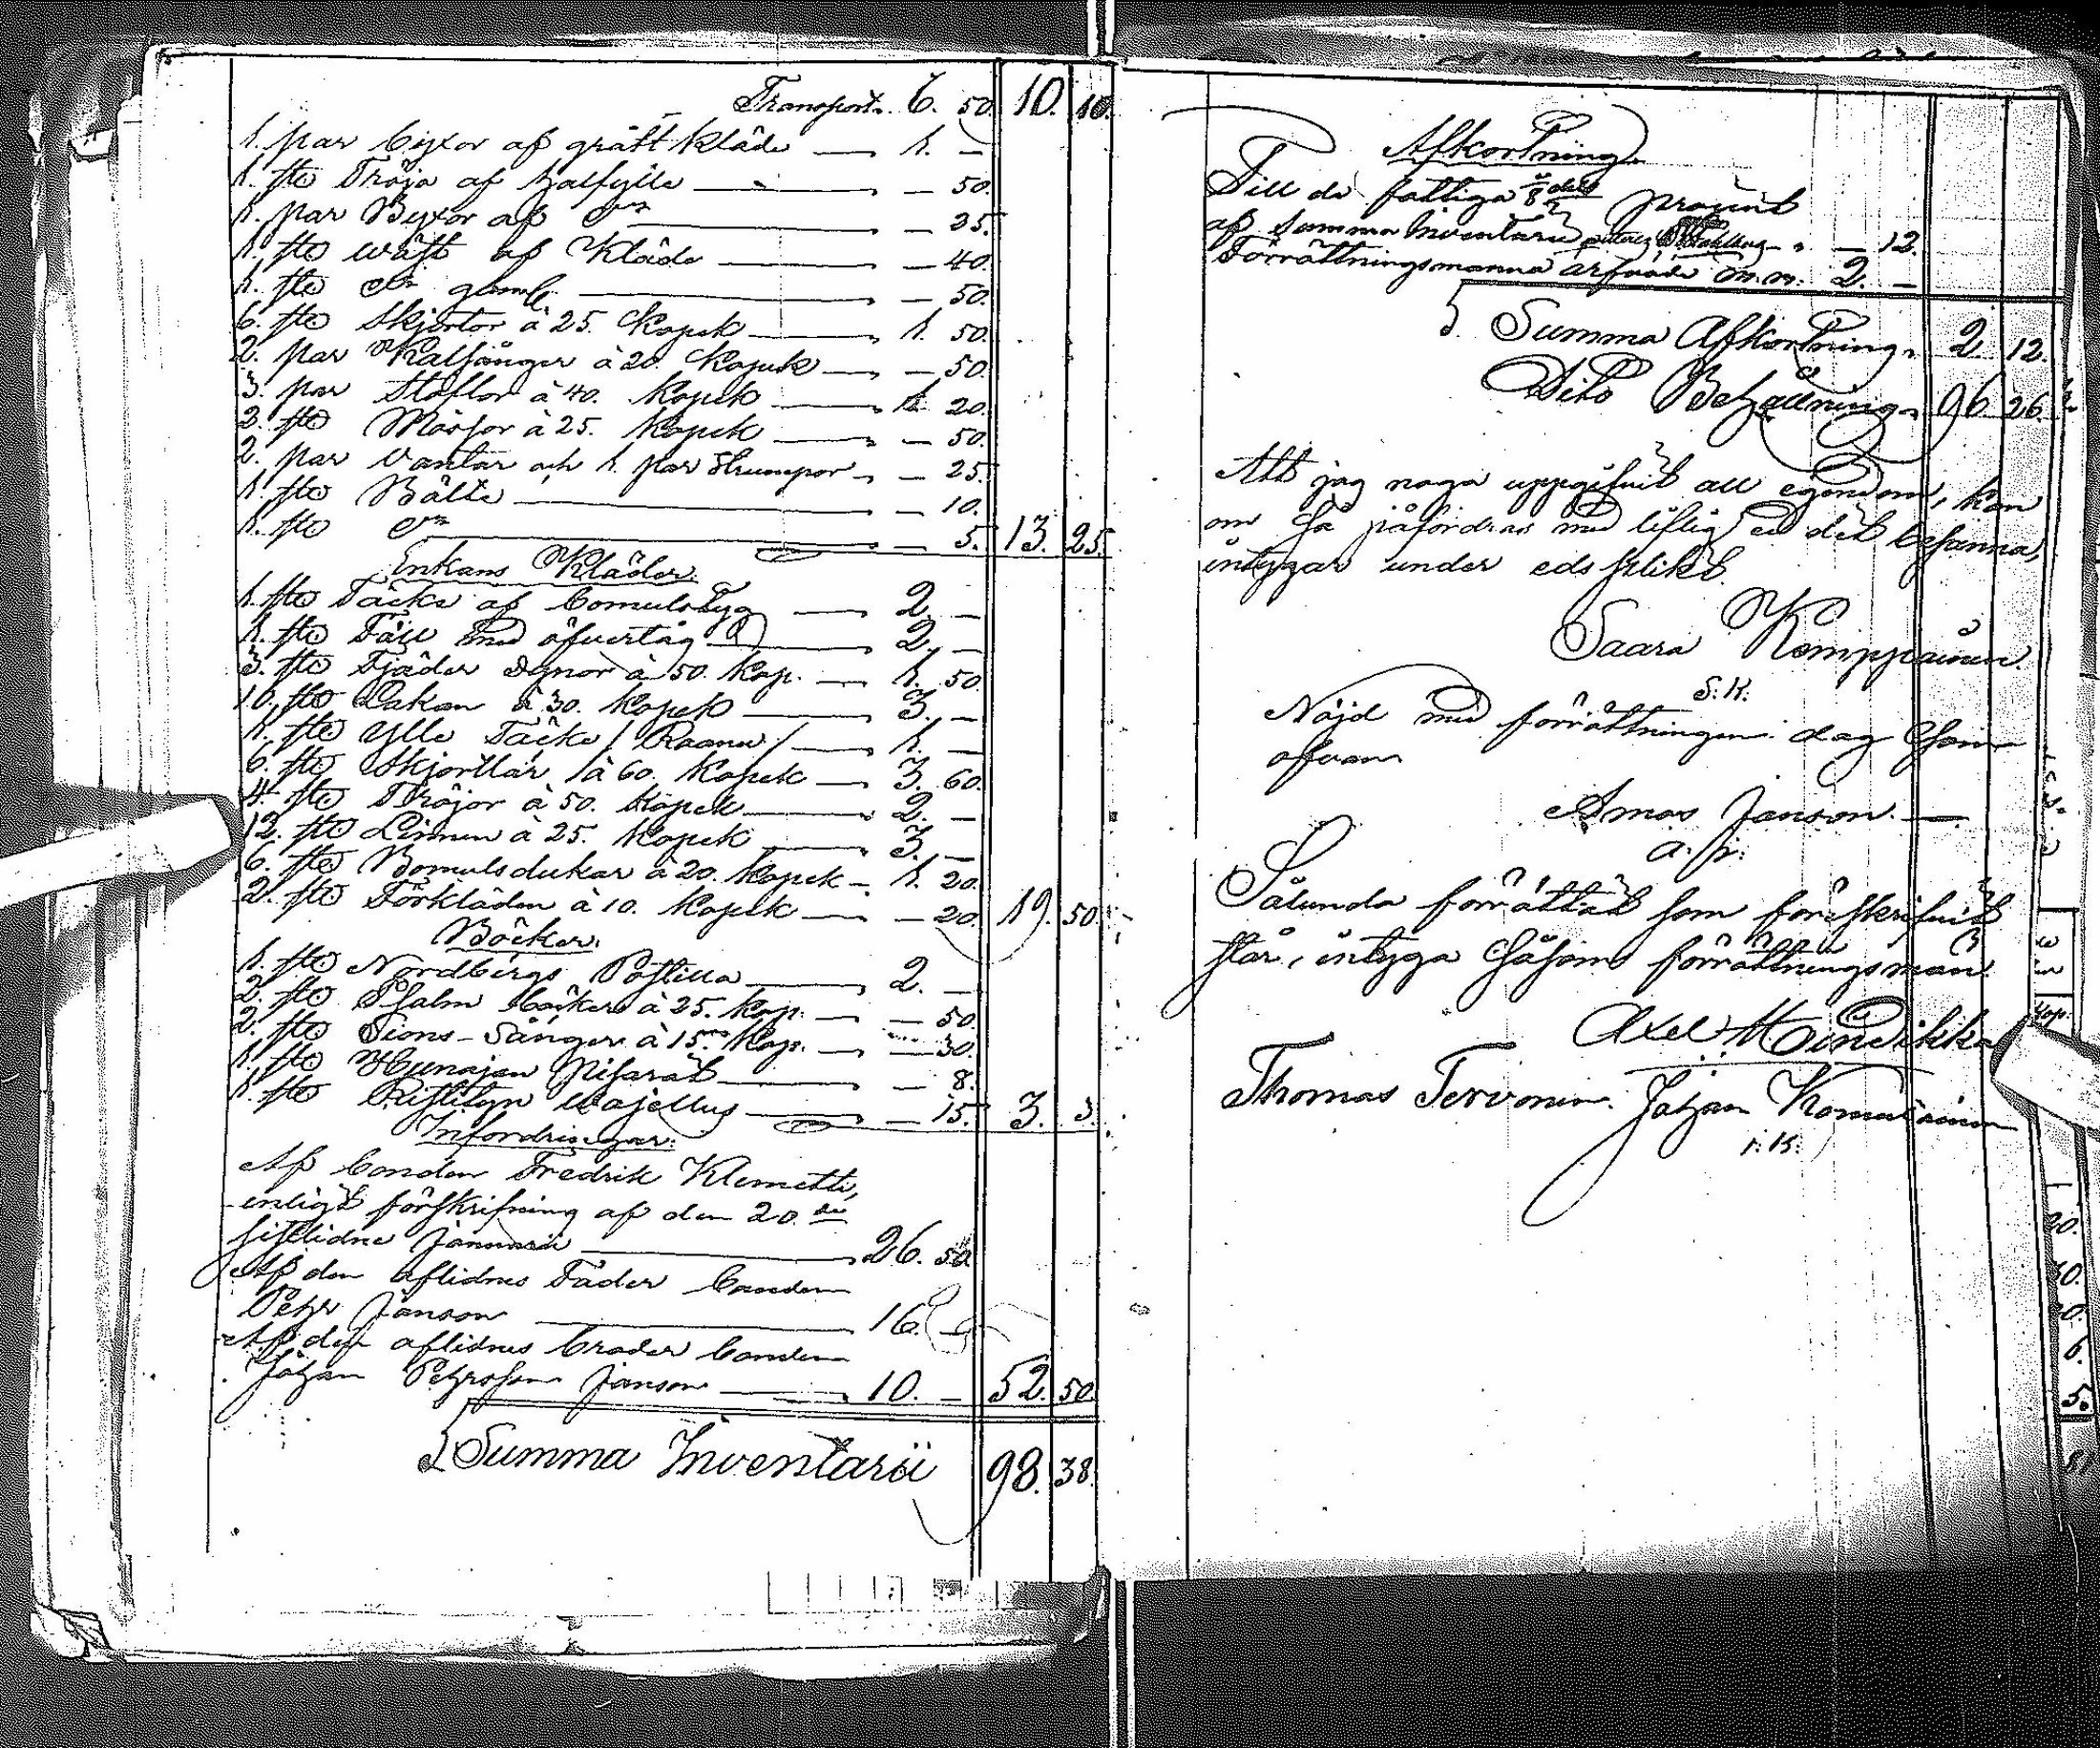 Transport. 6. 50. 10. 10.
1. par byxor af grått kläde — 1. —
1. sto Tröja af halfylle — 50.
1. par Byxor af do — 25.
1. sto wäst af Kläde — 40.
1. sto do gamla — 50.
6. sto Skjortor à 25. Kopek — 1. 50.
2. par Kalsånger à 20. Kopek — 50.
3. par Stöflor à 40. Kopek — 1. 20.
2. sto Mössor à 25. Kopek — 50.
2. par Vantar och 1. par Strumpor — 25.
1. sto Bälte — 10.
1. sto do — 5. 13. 25.
Enkans Kläder.
1. sto Täcke af bomulstyg — 2. —
1. sto Fäll med öfvertåg — 2. —
3. sto Fjäder dynor à 50. Kop. — 1. 50.
10. sto Lakan à 30. Kopek — 3. —
1. sto Ylle Täcke / Raanu / — 1. —
6. sto Skjortlar à 60. Kopek — 3. 60.
4. sto Tröjor à 50. Kopek — 2. —
12. sto Linnen à 25. Kopek — 3. —
6. sto Bomulsdukar à 20. Kopek — 1. 20.
2. sto Förkläden à 10. Kopek — 20. 19. 50.
Böcker.
1. sto Nordbergs Postilla — 2. —
2. sto Psalm böcker à 25. Kop. — 50.
2. sto Sions-Sånger à 15. Kop. — 30.
1. sto Hunajan Pisarat — 8.
1. sto Ristityn waellus — 15. 3. 3.
Infordringar.
Af bonden Fredrik Klemetti,
enligt förskrifning af den 20. de
sistlidne Januarii — 26. 50.
Af den aflidnes Fader bonden
Petter Janson — 16. —
Af den aflidnes broder bonden
Johan Petersson Janson — 10. — 52. 50.
Summa Inventarii 98. 38.
Afkortning.
Till de fattiga 8 dels procent
af Summa Inventarii — 12.
Förrättningsmanna arfvode m.m. 2. —
Summa Afkortning. 2. 12.
Dito Behållning. 96. 26.
Att jag noga uppgifvit all egendom, kan
om så påfordras med liflig ed det besanna,
intygar under eds plikt.
Saara Kemppainen
S. K.
Nöjd med förrättningen. dag Som
ofvan
Amos Janson. —
a. p.
Sålunda förrättat som föreskrifvit
står, intyga Såsom förrättningsmän
Axel Mindikka
Thomas Tervonen. Johan Komulainen
r. K.